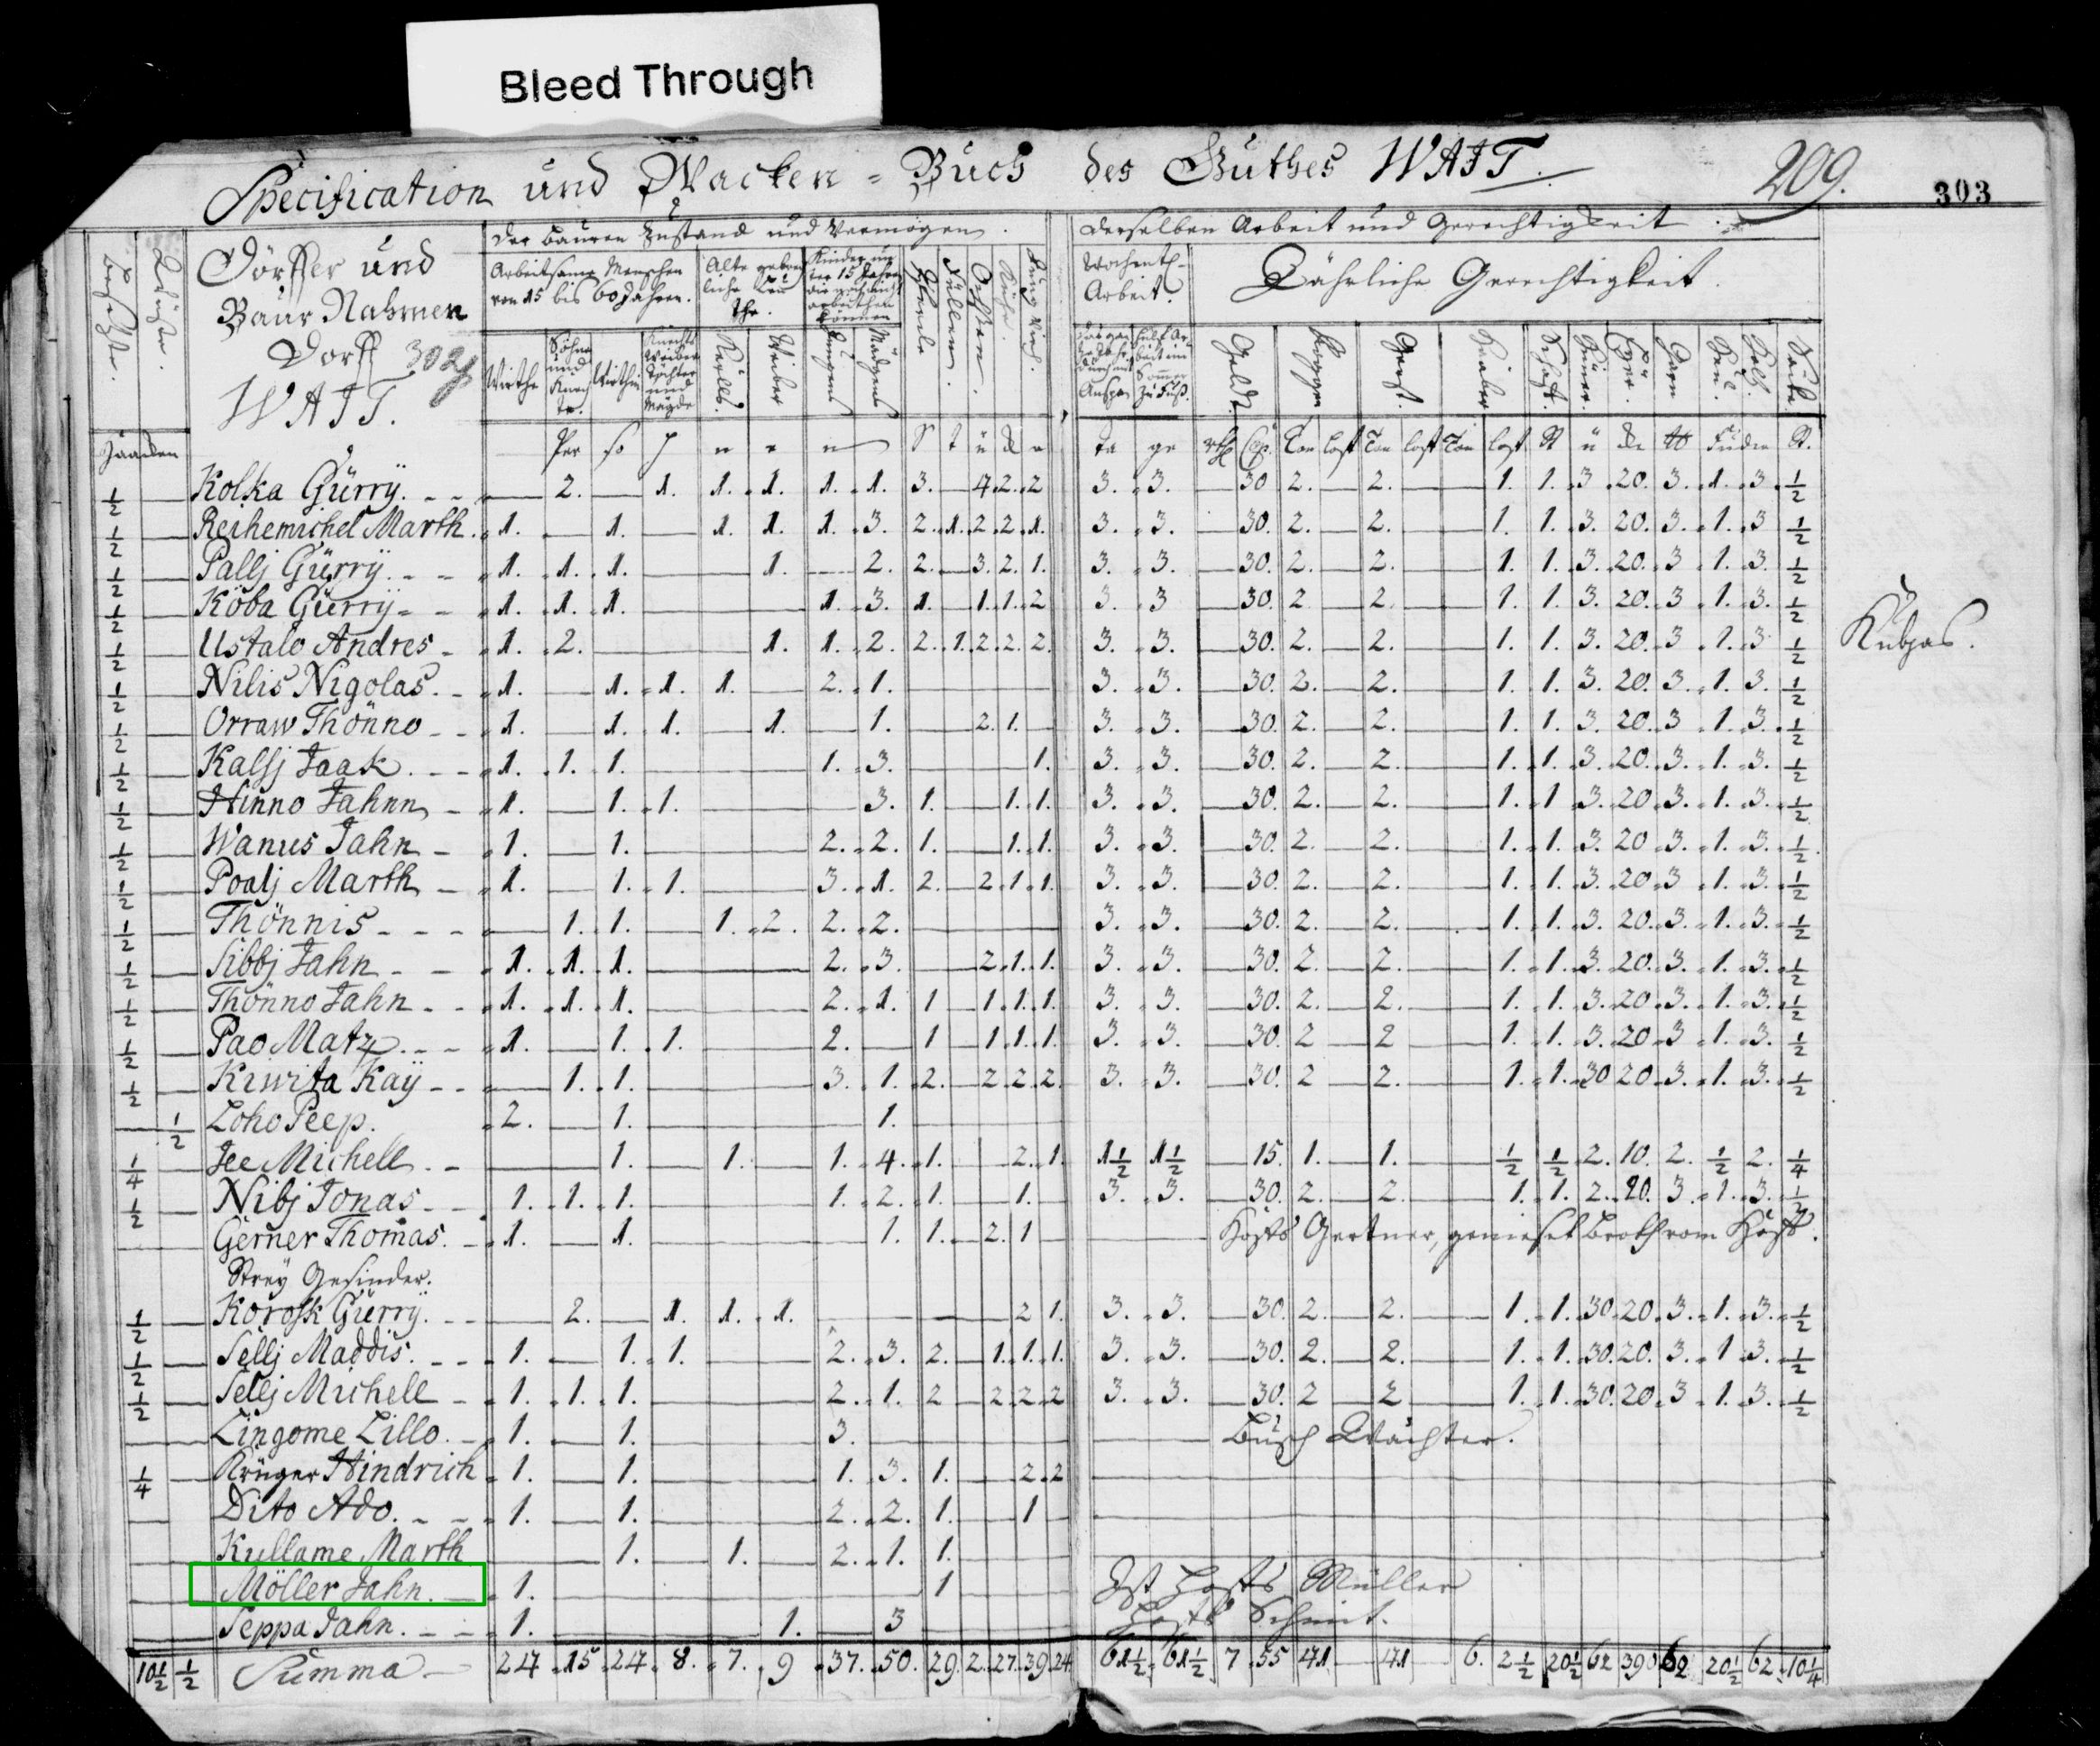 Bleed Through
Specification und Wacken-Buch des Guthes WAIT.
209.
303
Der Bauren Zustand und Vermögen.
Derselben Arbeit und Gerechtigkeit
Besetzte.
Wüste.
Dörffer und
Baur Nahmen
Dorff
WAIT.
302
Arbeitsame Menschen
von 15 bis 60 Jahren.
Jährliche Gerechtigkeit.
Wochentl.
Arbeit.
Haacken
Wirthe
Söhne und Knechte.
Wirthin
Kerlls.
Weiber
Jungens
Mägdens
Pferde
Füllen.
Ochsen.
Kühe.
Jung Vieh.
Geldt.
Roggen
Gerst.
Haaber
Schaf.
Hüner.
Eyer.
Garn
Heu.
Säcke
½ Kolka Gürrÿ. 2. 1. 1. 1. 1. 1. 3. 4. 2. 2 3. 3. 30 2. 2. 1. 1. 3. 20. 3. 1. 3. ½
½ Reihemichel Marth. 1. 1. 1. 1. 1. 3. 2. 1. 2. 2. 1. 3. 3. 30. 2. 2. 1. 1. 3. 20. 3. 1. 3 ½
½ Pallj Gürrÿ. 1. 1. 1. 1. 2. 2. 3. 2. 1. 3. 3. 30. 2. 2. 1. 1. 3. 20. 3 1. 3. ½
½ Koba Gürrÿ 1. 1. 1. 1. 3. 1. 1. 1. 2 3. 3 30. 2 2. 1. 1. 3. 20. 3 1. 3. ½
½ Ustalo Andres 1. 2. 1. 1. 2. 2. 1. 2. 2. 2. 3. 3. 30. 2. 2. 1. 1. 3. 20. 3 1. 3 ½ Kubjas.
½ Nilis Nigolas. 1. 1. 1. 1. 2. 1. 3. 3. 30. 2. 2. 1. 1. 3. 20. 3. 1. 3. ½
½ Orraw Thönno 1. 1. 1. 1. 1. 2. 1. 3. 3. 30. 2. 2. 1. 1. 3. 20. 3 1. 3. ½
½ Kalsj Jaak. 1. 1. 1. 1. 3. 1. 3. 3. 30. 2. 2. 1. 1. 3. 20. 3. 1. 3. ½
½ Hinno Jahnn 1. 1. 1. 3. 1. 1. 1. 3. 3. 30. 2. 2. 1. 1 3. 20 3. 1. 3. ½
½ Wanus Jahn 1. 1. 2. 2. 1. 1. 1. 3. 3. 30. 2. 2. 1. 1. 3. 20 3. 1. 3. ½
½ Poalj Marth 1. 1. 1. 3. 1. 2. 2. 1. 1. 3. 3. 30. 2. 2. 1. 1. 3. 20 3 1. 3. ½
½ Thönnis 1. 1. 1. 2. 2. 2. 3. 3. 30. 2. 2. 1. 1. 3. 20. 3. 1. 3. ½
½ Sibbj Jahn 1. 1. 1. 2. 3. 2. 1. 1. 3. 3. 30. 2. 2. 1. 1. 3. 20. 3. 1. 3. ½
½ Thönno Jahn 1. 1. 1. 2. 1. 1 1. 1. 1. 3. 3. 30. 2. 2. 1. 1. 3. 20. 3. 1. 3. ½
½ Pao Matz. 1. 1. 1. 2. 1 1. 1. 1. 3. 3. 30. 2 2 1. 1. 3. 20 3 1. 3. ½
½ Kiwita Kaÿ 1. 1. 3. 1. 2. 2. 2. 2. 3. 3. 30. 2 2. 1. 1. 30 20 3. 1. 3. ½
½ Loho Peep. 2. 1. 1.
¼ Jee Michell. 1. 1. 1. 4. 1. 2. 1. 1½ 1½ 15. 1. 1. ½ ½ 2. 10. 2. ½ 2. ¼
½ Nibj Jonas 1. 1. 1. 1. 2. 1. 1. 3. 3. 30. 2. 2. 1. 1. 2. 20. 3 1. 3. ½
Gerner Thomas. 1. 1. 1. 1. 2. 1 Hofs Gertner, genieset Broth vom Hoff.
Strey Gesinder.
½ Korosk Gürrÿ. 2. 1. 1. 1. 2 1. 3. 3. 30. 2. 2. 1. 1. 30. 20. 3. 1. 3. ½
½ Sellj Maddis. 1. 1. 1. 2. 3. 2. 1. 1. 1. 3. 3. 30. 2. 2. 1. 1. 30. 20. 3. 1 3. ½
½ Sellj Michell 1. 1. 1. 2. 1. 2 2. 2. 2 3. 3. 30. 2 2 1. 1. 30. 20. 3 1. 3. ½
Lingome Lillo. 1. 1. 3. Busch Wächter.
¼ Krüger Hindrich 1. 1. 1. 3. 1. 2. 2
Dito Ado. 1. 1. 2. 2. 1. 1
Kyllame Marth 1. 1. 2. 1. 1.
Möller Jahn. 1. 1 Ist Hofs Müller
Seppa Jahn. 1. 1. 3 Hofs Schmit.
10½ ½ Summa 24 15 24 8. 7. 9 37. 50. 29. 2. 27. 39. 24. 61½ 61½ 7 55 41 41 6. 2½ 20½ 62 390 62 20½ 62 10¼